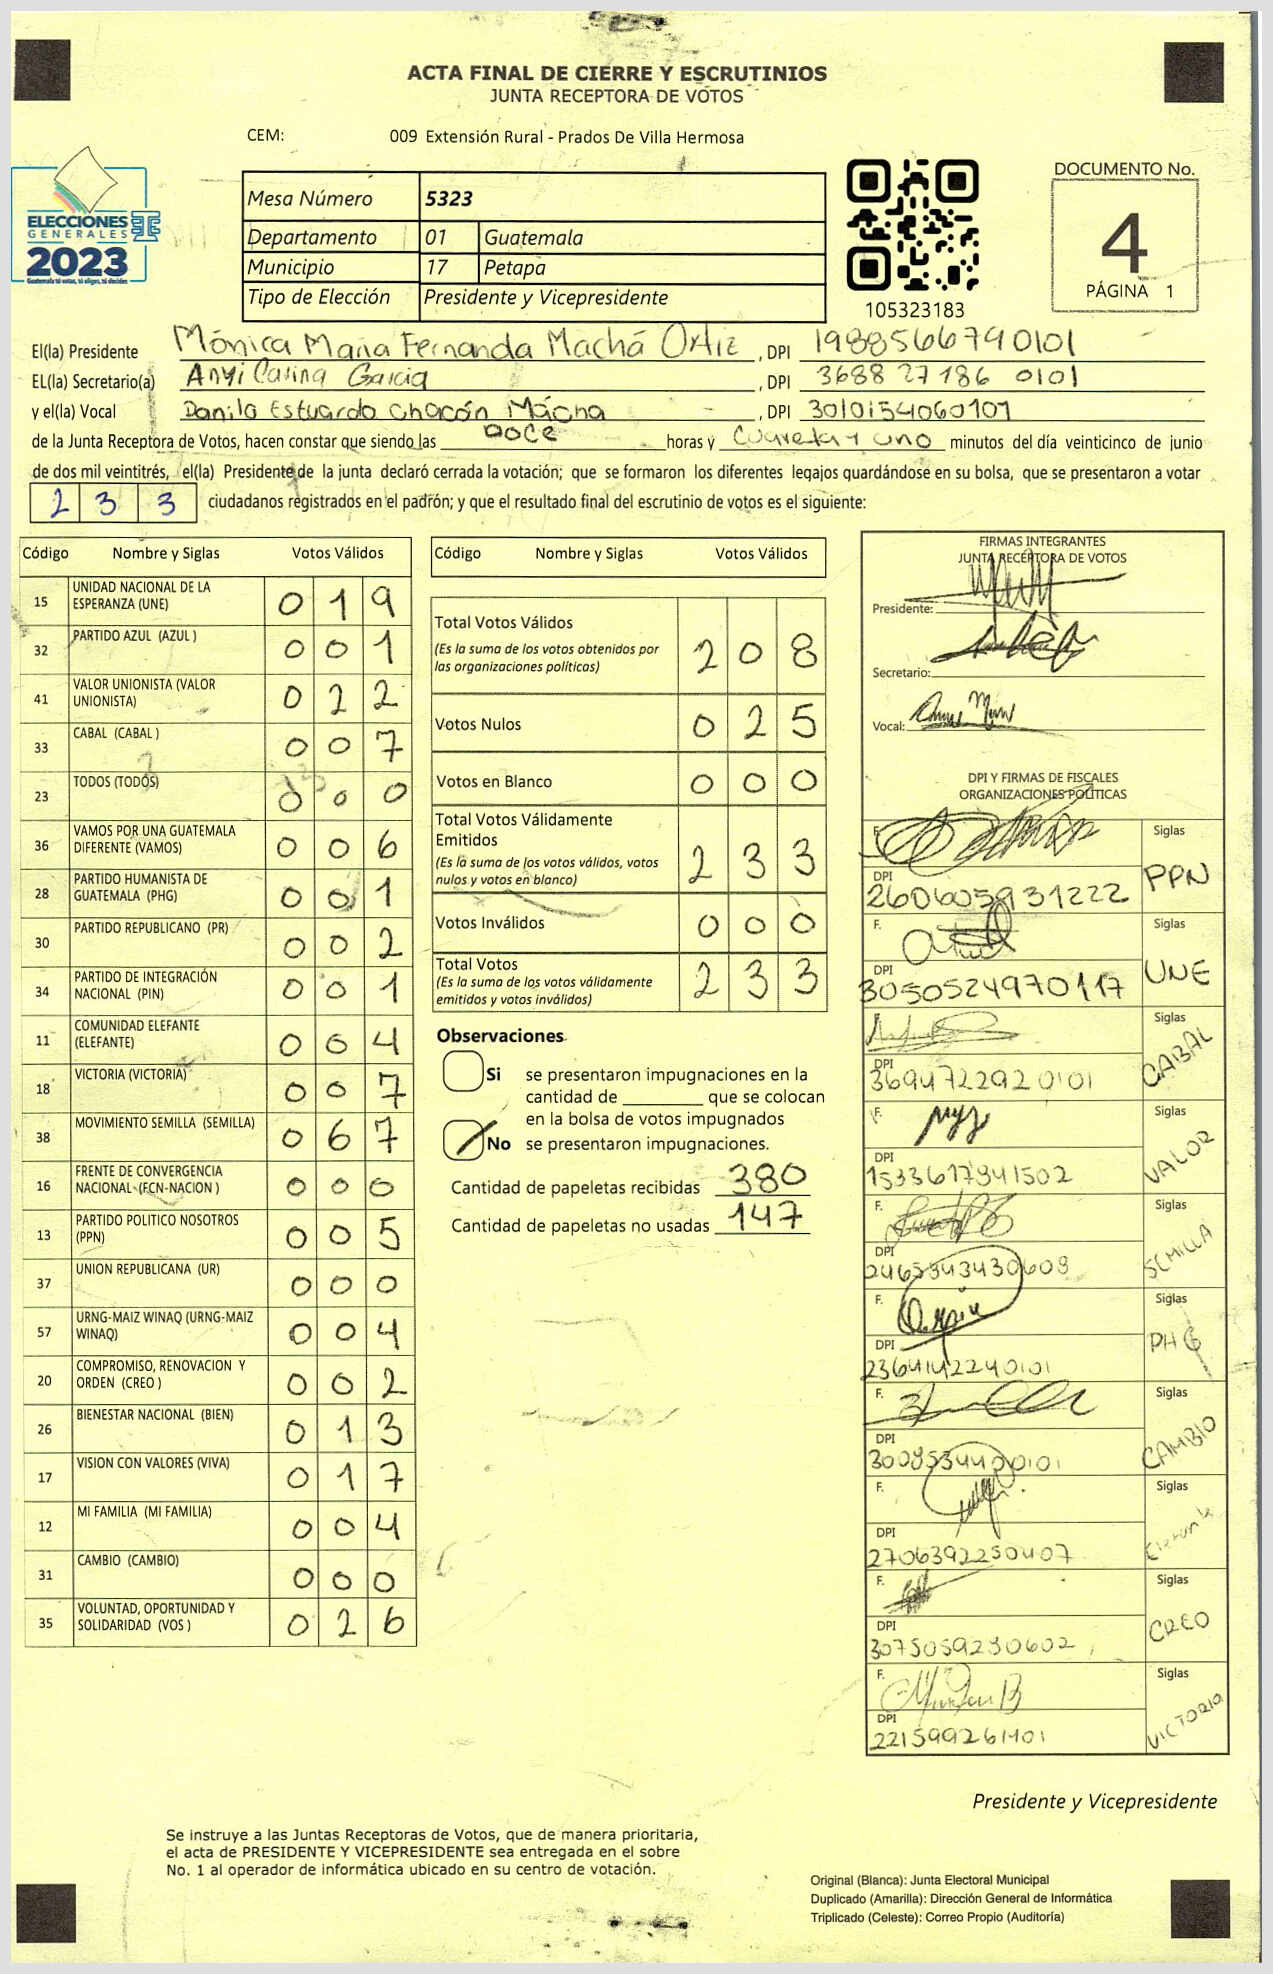 ACTA FINAL DE CIERRE Y ESCRUTINIOS
JUNTA RECEPTORA DE VOTOS
CEM: 009 Extensión Rural - Prados De Villa Hermosa
ELECCIONES
GENERALES
2023
Guatemala tú votas, tú eliges, tú decides
Mesa Número 5323
Departamento 01 Guatemala
Municipio 17 Petapa
Tipo de Elección Presidente y Vicepresidente
105323183
DOCUMENTO No.
4
PÁGINA 1
El(la) Presidente Mónica Maria Fernanda Machá Ortiz, DPI 1988566790101
EL(la) Secretario(a) Anyi Carina Garcia, DPI 3688 27186 0101
y el(la) Vocal Danilo Estuardo Chacón Mácha, DPI 3010154060101
de la Junta Receptora de Votos, hacen constar que siendo las Doce horas y Cuarenta y uno minutos del día veinticinco de junio
de dos mil veintitrés, el(la) Presidente de la junta declaró cerrada la votación; que se formaron los diferentes legajos guardándose en su bolsa, que se presentaron a votar
233 ciudadanos registrados en el padrón; y que el resultado final del escrutinio de votos es el siguiente:
Código Nombre y Siglas Votos Válidos
15 UNIDAD NACIONAL DE LA ESPERANZA (UNE) 019
32 PARTIDO AZUL (AZUL ) 001
41 VALOR UNIONISTA (VALOR UNIONISTA) 022
33 CABAL (CABAL ) 007
23 TODOS (TODOS) 000
36 VAMOS POR UNA GUATEMALA DIFERENTE (VAMOS) 006
28 PARTIDO HUMANISTA DE GUATEMALA (PHG) 001
30 PARTIDO REPUBLICANO (PR) 002
34 PARTIDO DE INTEGRACIÓN NACIONAL (PIN) 001
11 COMUNIDAD ELEFANTE (ELEFANTE) 004
18 VICTORIA (VICTORIA) 007
38 MOVIMIENTO SEMILLA (SEMILLA) 067
16 FRENTE DE CONVERGENCIA NACIONAL (FCN-NACION ) 000
13 PARTIDO POLITICO NOSOTROS (PPN) 005
37 UNION REPUBLICANA (UR) 000
57 URNG-MAIZ WINAQ (URNG-MAIZ WINAQ) 004
20 COMPROMISO, RENOVACION Y ORDEN (CREO ) 002
26 BIENESTAR NACIONAL (BIEN) 013
17 VISION CON VALORES (VIVA) 017
12 MI FAMILIA (MI FAMILIA) 004
31 CAMBIO (CAMBIO) 000
35 VOLUNTAD, OPORTUNIDAD Y SOLIDARIDAD (VOS ) 026
Código Nombre y Siglas Votos Válidos
Total Votos Válidos 208
(Es la suma de los votos obtenidos por
las organizaciones políticas)
Votos Nulos 025
Votos en Blanco 000
Total Votos Válidamente
Emitidos 233
(Es la suma de los votos válidos, votos
nulos y votos en blanco)
Votos Inválidos 000
Total Votos 233
(Es la suma de los votos válidamente
emitidos y votos inválidos)
Observaciones
Si se presentaron impugnaciones en la
cantidad de ________ que se colocan
en la bolsa de votos impugnados
No se presentaron impugnaciones.
Cantidad de papeletas recibidas 380
Cantidad de papeletas no usadas 147
FIRMAS INTEGRANTES
JUNTA RECEPTORA DE VOTOS
Presidente:
Secretario:
Vocal:
DPI Y FIRMAS DE FISCALES
ORGANIZACIONES POLÍTICAS
F. Siglas
DPI 260605931222 PPN
F. Siglas
DPI 3050524970117 UNE
Siglas
DPI 3694722920101 CABAL
F. Siglas
DPI 1533617941502 VALOR
F. Siglas
DPI 2465343430608 SEMILLA
F. Siglas
DPI 2364142240101 PHG
F. Siglas
DPI CAMBIO
F. Siglas
DPI 2706392250407
F. Siglas
DPI 3075059230602 CREO
F. Siglas
DPI VICTORIO
Presidente y Vicepresidente
Se instruye a las Juntas Receptoras de Votos, que de manera prioritaria,
el acta de PRESIDENTE Y VICEPRESIDENTE sea entregada en el sobre
No. 1 al operador de informática ubicado en su centro de votación.
Original (Blanca): Junta Electoral Municipal
Duplicado (Amarilla): Dirección General de Informática
Triplicado (Celeste): Correo Propio (Auditoría)